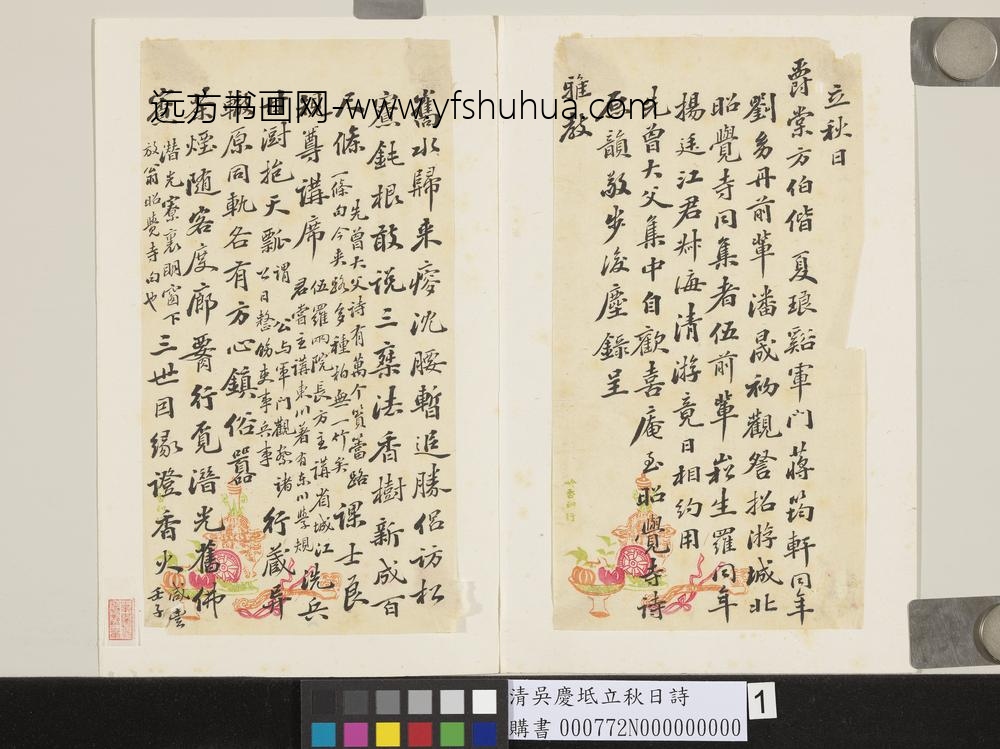 立秋日
爵棠方伯偕夏琅谿軍門蔣筠軒同年
劉 丹前輩潘晟初觀詧招游城北
昭覺寺同集者伍前輩崧生羅同年
楊廷江君叔海清游竟日相約用
先曾大父集中自歡喜庵至昭覺寺詩
原韻敬步後塵錄呈
雅教
舊水歸来瘦沈腰暫追勝侶訪松
寮鈍根敢说三乗法香樹新成百
尺條
先曾大父诗有萬个篔簹路
一條句今来路多種柏無一竹矣
課士良
規尊講席
伍羅两院長方主講省城江
君嘗主講東川著有东川學規
洗兵
厨挹天瓢
謂公与軍門觀察諸
公日整飭吏事兵事
行藏異
轍原同軌各有方心鎮俗嚣
茶煙随客度廊 行覓潛光舊佛
潛光寮裏明窗下
放翁昭覺寺句也
三世因缘證香火
壬子
远方书画网-www.yfshuhua.com
清吳慶坻立秋日詩
購書 000772N000000000
1